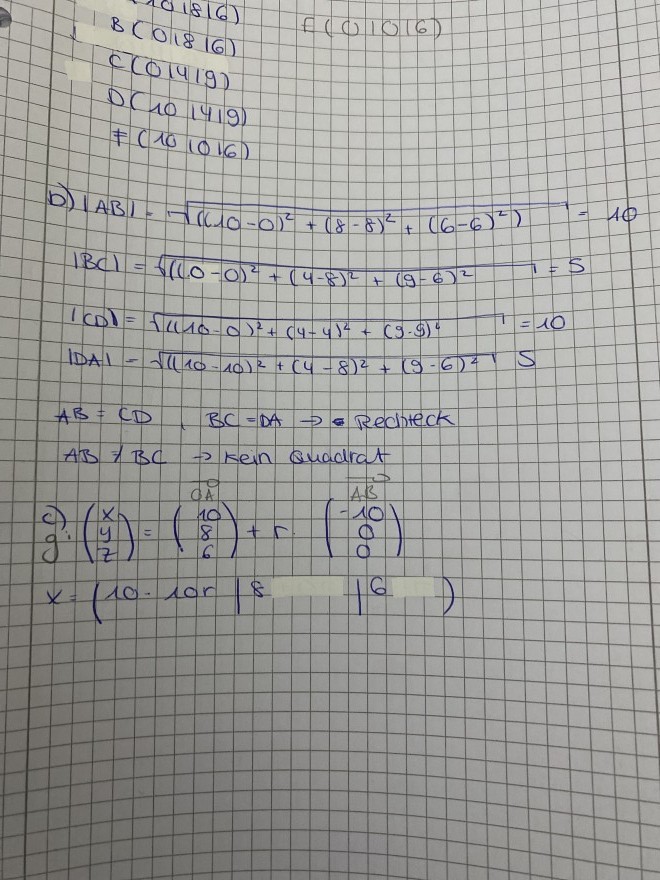 10|8|6)
B(0|8|6)
E(0|0|6)
C(0|4|9)
D(10|4|9)
F(10|0|6)
b) |AB| = √((10-0)² + (8-8)² + (6-6)²) = 10
|BC| = √((0-0)² + (4-8)² + (9-6)² = 5
|CD| = √((10-0)² + (4-4)² + (9-9)² = 10
|DA| = √((10-10)² + (4-8)² + (9-6)² 5
AB = CD, BC = DA → Rechteck
AB ≠ BC → kein Quadrat
OA AB
c) g: (x y z) = (10 8 6) + r · (-10 0 0)
x = (10 - 10r | 8 | 6 )